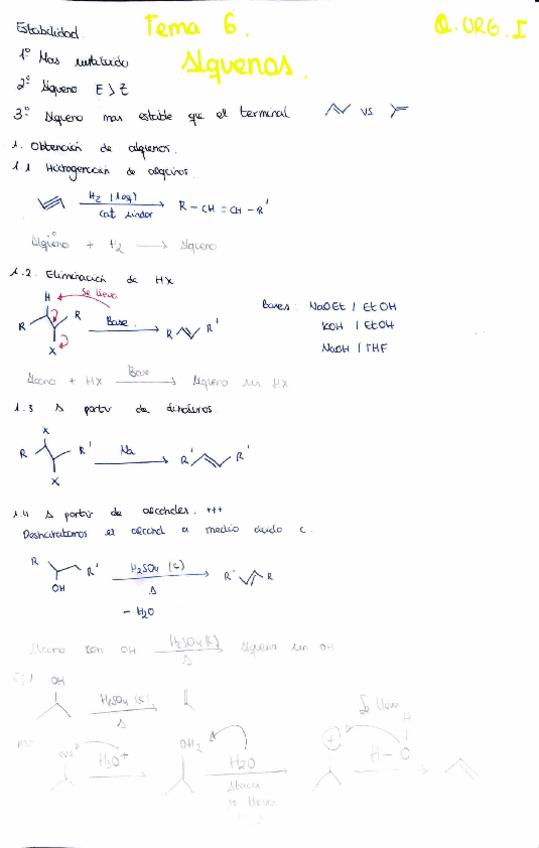 Estabilidad. Tema 6. Q.ORG.I
1º Mas sustituido Alquenos.
2º Alqueno E > Z
3º Alqueno mas estable que el terminal vs
1. Obtención de alquenos.
1.1 Hidrogenación de alquinos.
H2 (1 eq)
cat Lindlar R - CH = CH - R'
Alquino + H2 → Alqueno
1.2. Eliminación de HX
Se lleva
H R Base R R' Bases: NaOEt / EtOH
R X KOH / EtOH
NaOH / THF
Alcano + HX Base Alqueno sin HX
1.3 A partir de
X
R R' Na R' R'
X
1.4 A partir de alcoholes. +++
Deshidratamos el alcohol a medio ácido c.
R R' H2SO4 (c) R' R
OH Δ
- H2O
Alcano con OH H2SO4 (c) Alqueno sin OH
Δ
Ej/ OH
H2SO4
Δ
Lo lleva
OH2 H
H3O+ H2O + H - O
Ataca
se lleva